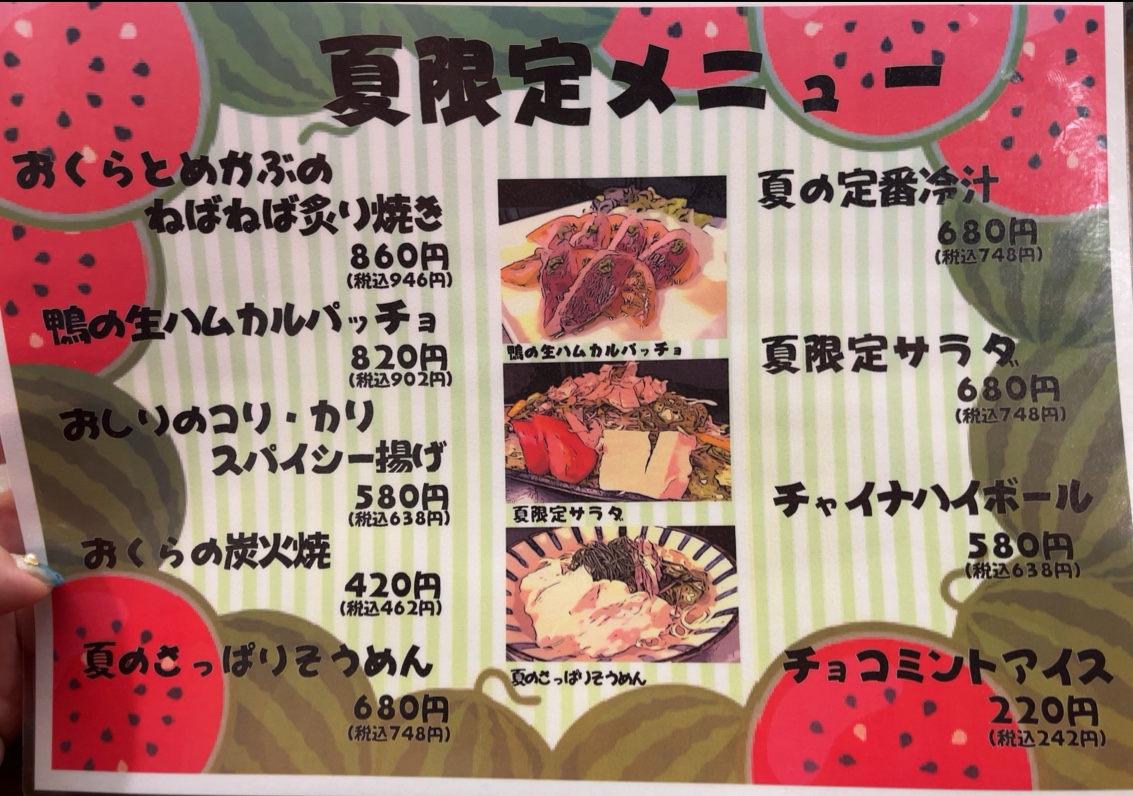 夏限定メニュー
おくらとめかぶの
ねばねば炙り焼き
860円
(税込946円)
鴨の生ハムカルパッチョ
820円
(税込902円)
おしりのコリ・カリ
スパイシー揚げ
580円
(税込638円)
おくらの炭火焼
420円
(税込462円)
夏のさっぱりそうめん
680円
(税込748円)
鴨の生ハムカルパッチョ
夏限定サラダ
夏のさっぱりそうめん
夏の定番冷汁
680円
(税込748円)
夏限定サラダ
680円
(税込748円)
チャイナハイボール
580円
(税込638円)
チョコミントアイス
220円
(税込242円)